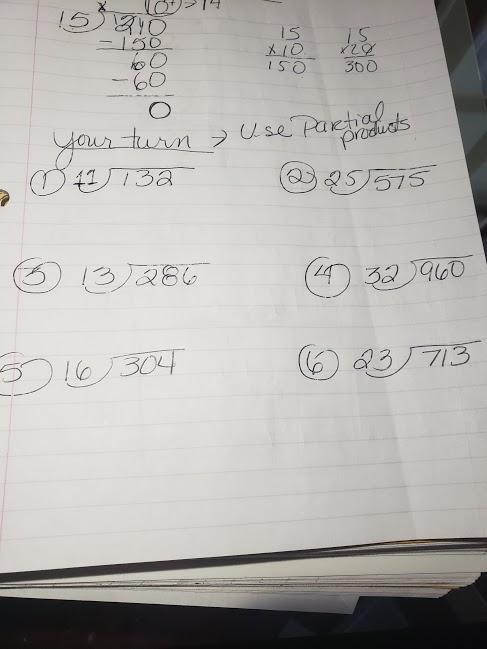 14
15)210
-150
60
-60
0
15
x10
150
15
x20
300
Your turn → Use Partial products
① 11)132
② 25)575
③ 13)286
④ 32)960
5 16)304
⑥ 23)713